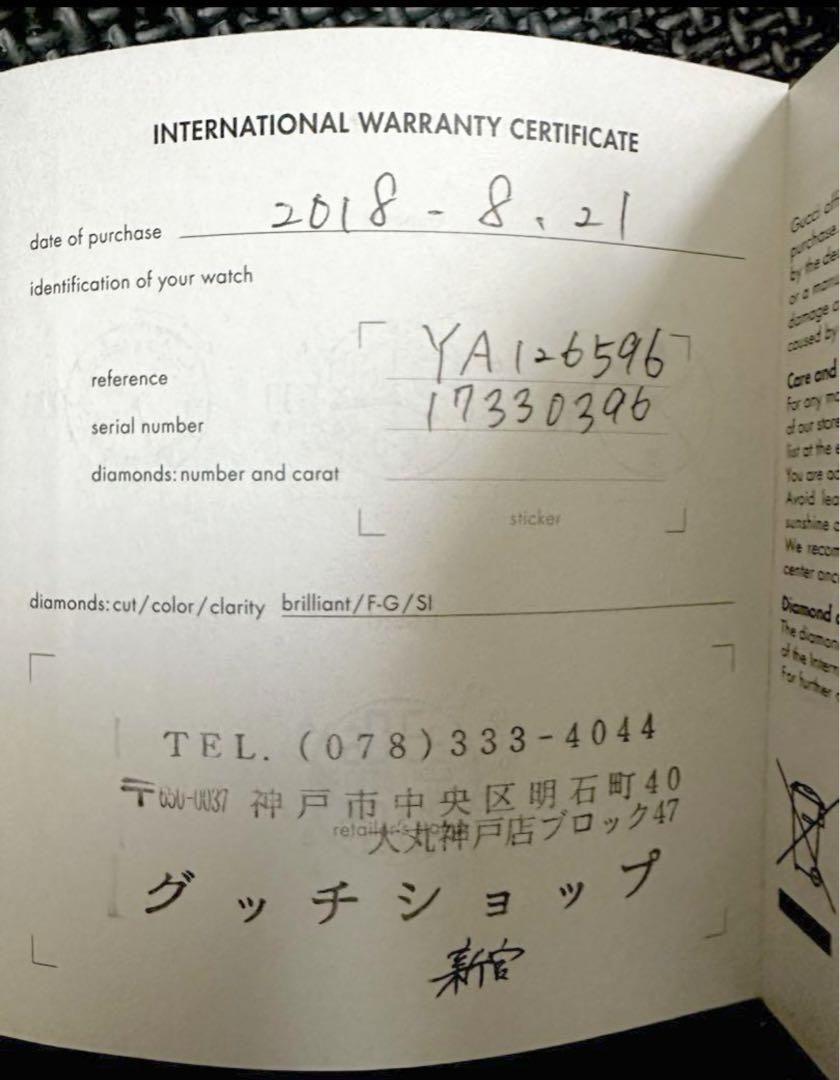 INTERNATIONAL WARRANTY CERTIFICATE
date of purchase 2018-8.21
identification of your watch
reference YA126596
serial number 17330396
diamonds: number and carat
sticker
diamonds: cut/color/clarity brilliant/F-G/SI
TEL. (078)333-4044
〒650-0037 神戸市中央区明石町40
大丸神戸店ブロック47
グッチショップ
新宮
Gucci
purchase.
by the
or a
damage
caused by
Care and
For any
of our
list at the
You are
Avoid
sunshine
We
center
Diamond
The
of the
For further